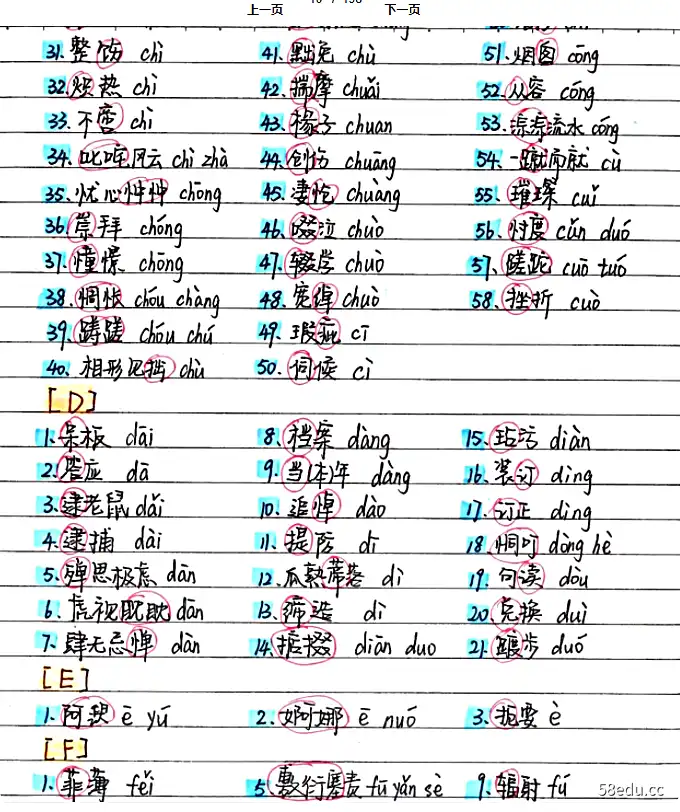 上一页 下一页
31. 整饬 chì 41. 黜免 chù 51. 烟囱 cōng
32. 炽热 chì 42. 揣摩 chuǎi 52. 从容 cóng
33. 不啻 chì 43. 椽子 chuan 53. 淙淙流水 cóng
34. 叱咤风云 chì zhà 44. 创伤 chuāng 54. 一蹴而就 cù
35. 忧心忡忡 chōng 45. 凄怆 chuàng 55. 璀璨 cuǐ
36. 崇拜 chóng 46. 啜泣 chuò 56. 忖度 cǔn duó
37. 憧憬 chōng 47. 辍学 chuò 57. 蹉跎 cuō tuó
38. 惆怅 chóu chàng 48. 宽绰 chuò 58. 挫折 cuò
39. 踌躇 chóu chú 49. 瑕疵 cī
40. 相形见拙 chù 50. 伺候 cì
[D]
1. 呆板 dāi 8. 档案 dàng 15. 玷污 diàn
2. 答应 dā 9. 当(本)年 dàng 16. 装订 ding
3. 逮老鼠 dǎi 10. 追悼 dào 17. 订正 ding
4. 逮捕 dài 11. 提防 dī 18. 恫吓 dòng hè
5. 殚思极虑 dān 12. 瓜熟蒂落 dì 19. 句读 dòu
6. 虎视眈眈 dān 13. 缔造 dì 20. 兑换 duì
7. 肆无忌惮 dàn 14. 掂掇 diān duo 21. 踱步 duó
[E]
1. 阿谀 ē yú 2. 婀娜 ē nuó 3. 扼要 è
[F]
1. 菲薄 fěi 5. 敷衍塞责 fū yǎn sè 9. 辐射 fú
58edu.cc